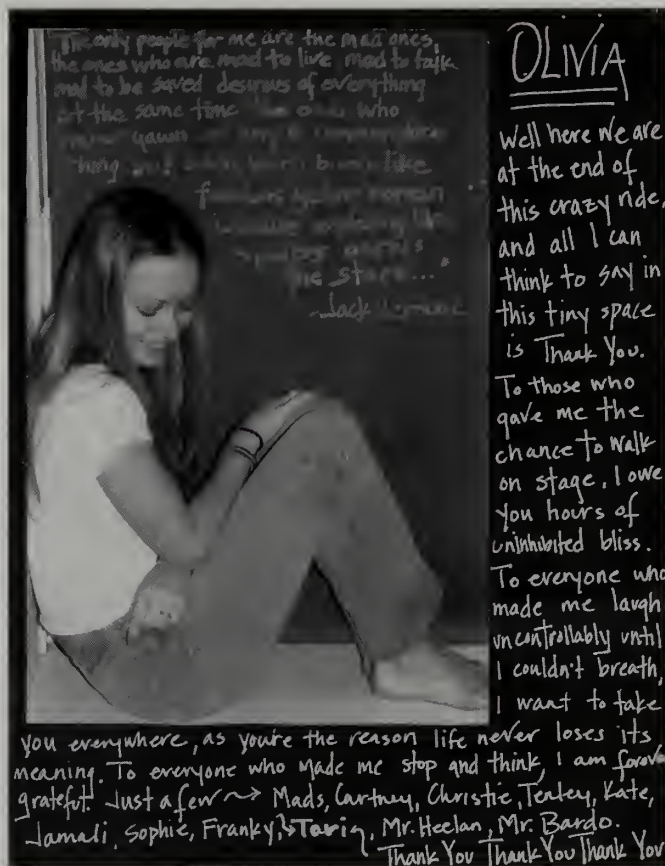 The only people for me are the mad ones,
the ones who are mad to live mad to talk
mad to be saved desirous of everything
at the same time the ones who
never yawn
thing but burn burn burn like
the stars..."
-Jack Kerouac
OLIVIA
Well here we are
at the end of
this crazy ride,
and all I can
think to say in
this tiny space
is Thank You.
To those who
gave me the
chance to walk
on stage, I owe
you hours of
uninhibited bliss.
To everyone who
made me laugh
uncontrollably until
I couldn't breath,
I want to take
you everywhere, as you're the reason life never loses its
meaning. To everyone who made me stop and think, I am forever
grateful. Just a few → Mads, Cartney, Christie, Tenley, Kate,
Jamali, Sophie, Franky, Toria, Mr. Heelan, Mr. Bardo.
Thank You Thank You Thank You